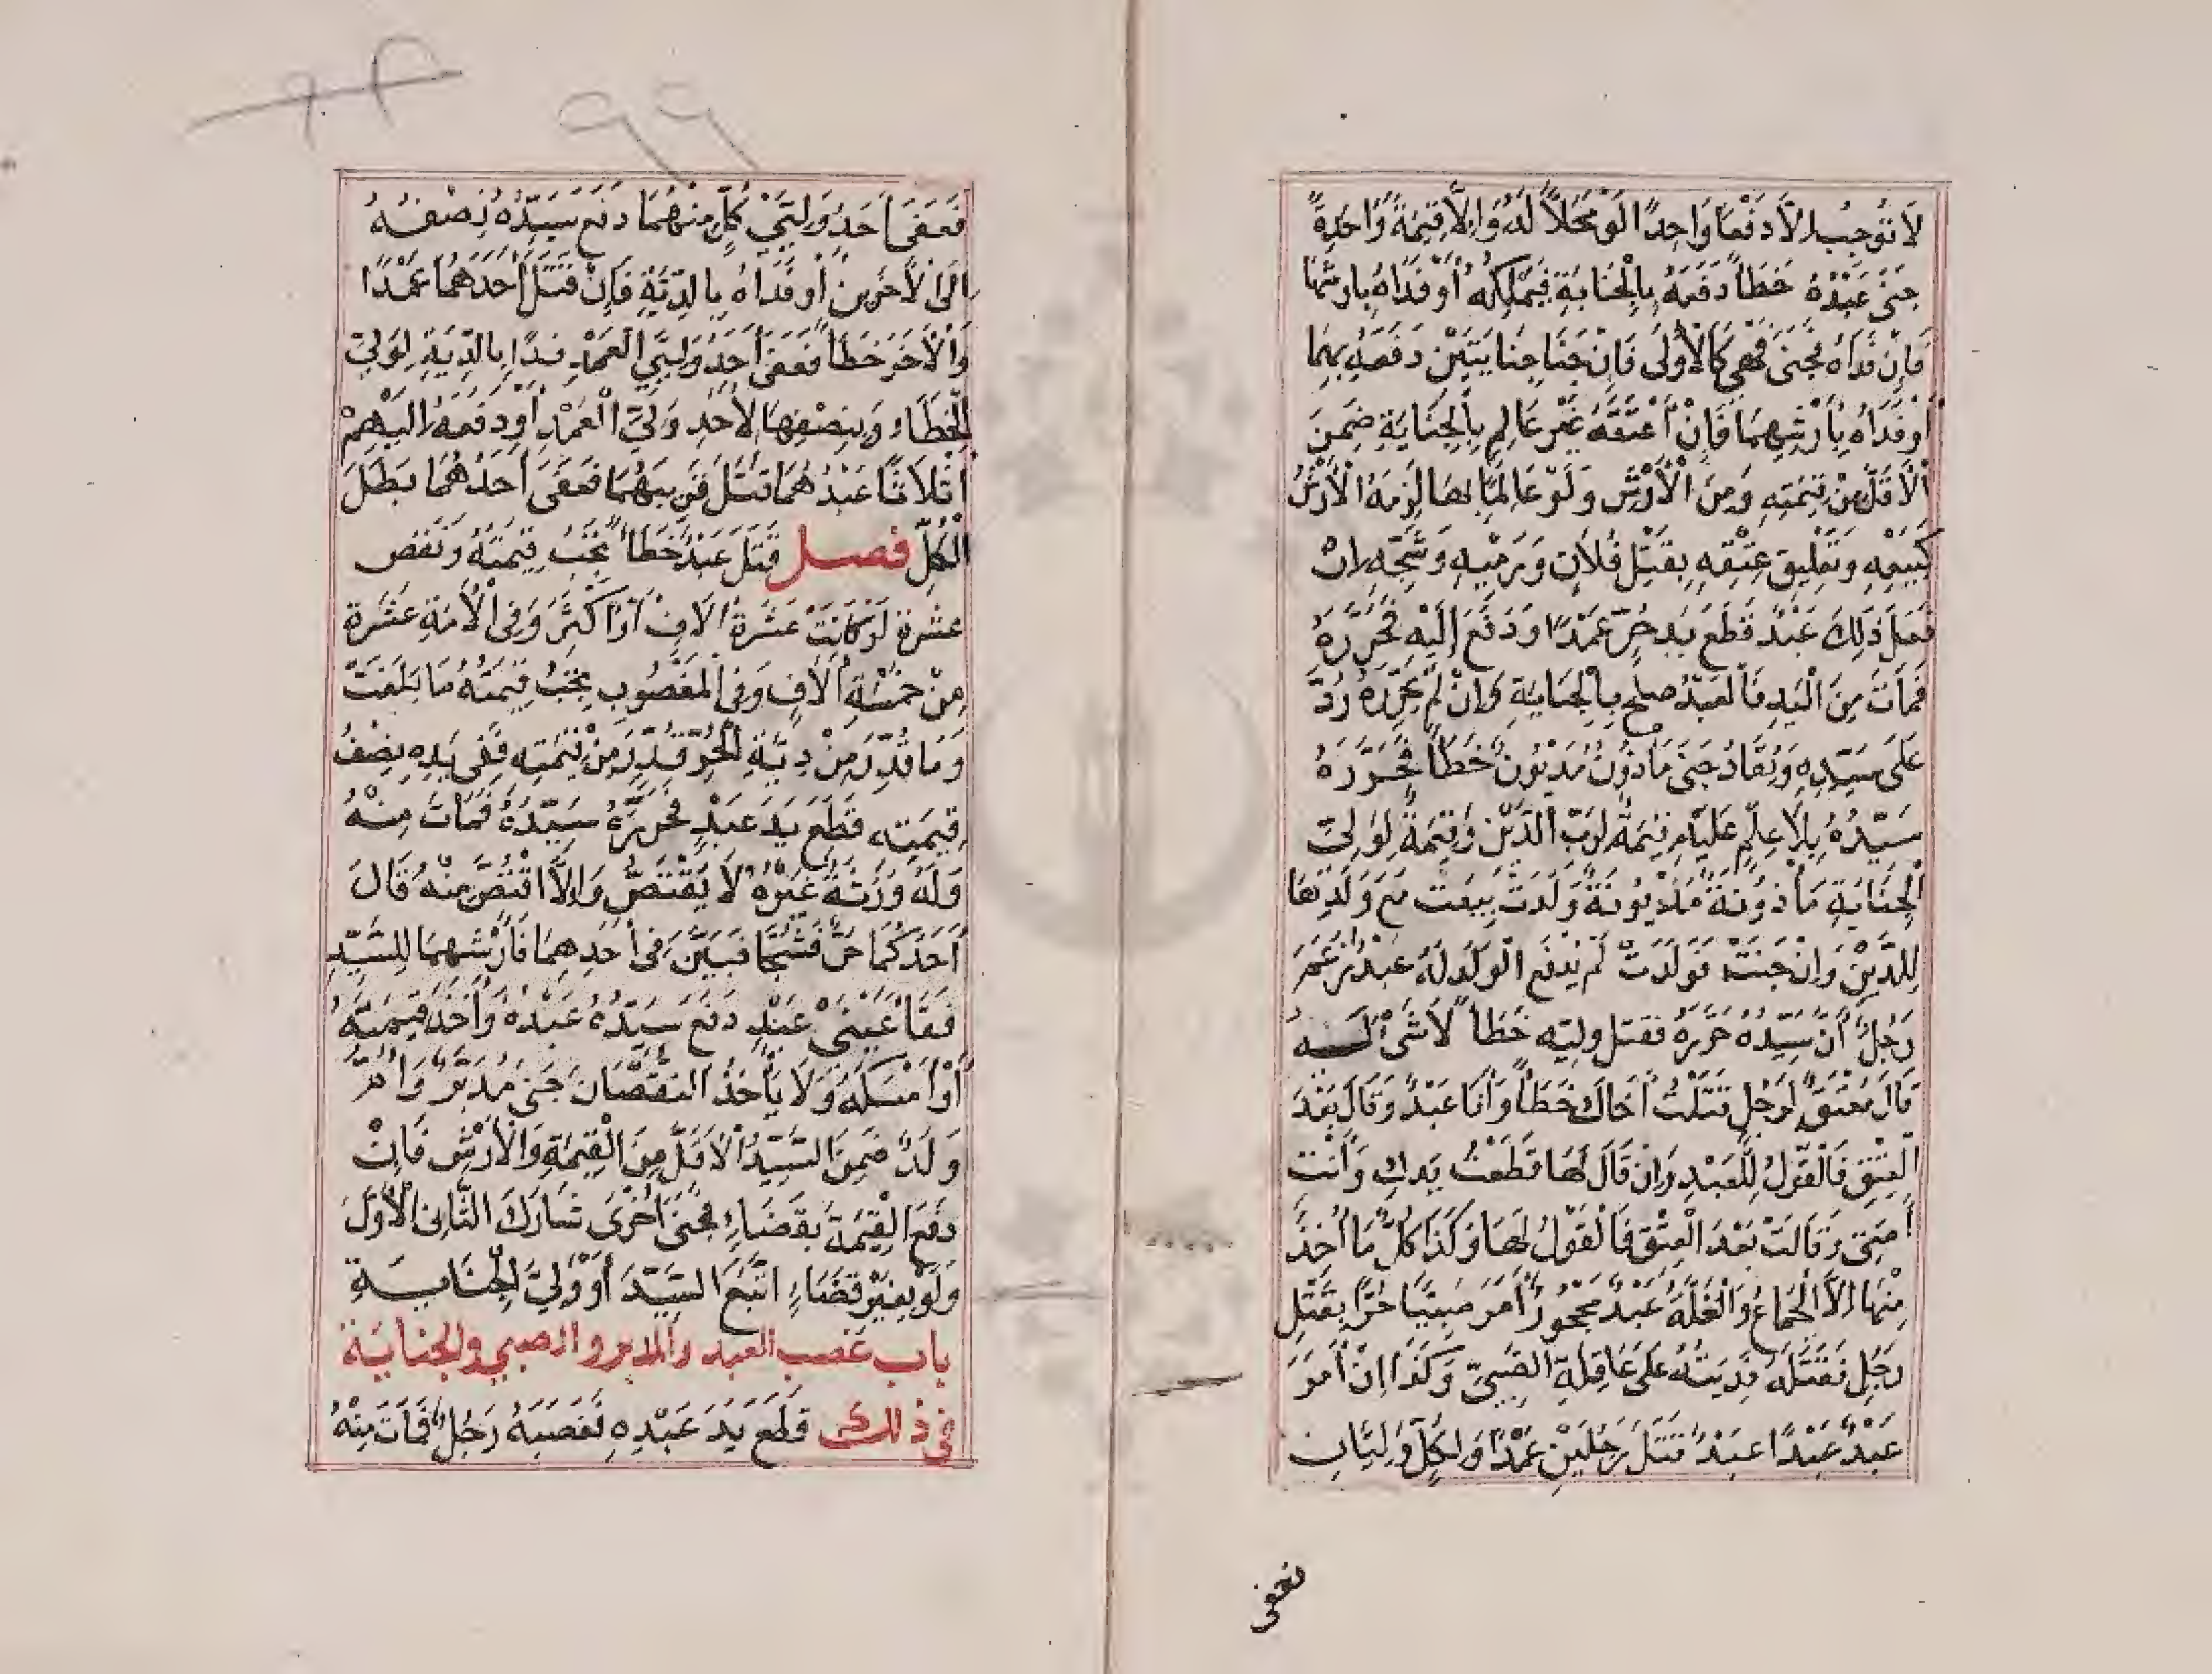 لَا تُوجِبُ إِلَّا دَفْعًا وَاحِدًا لَوْ مَحَلًّا لَهُ وَإِلَّا قِيمَةً وَاحِدَةً
جَنَى عَبْدُهُ خَطَأً دَفَعَهُ بِالْجِنَايَةِ فَيَمْلِكُهُ أَوْ فَدَاهُ بِأَرْشِهَا
فَإِنْ فَدَاهُ فَجَنَى فَهِيَ كَالْأُولَى فَإِنْ جَنَا جِنَايَتَيْنِ دَفَعَهُ بِهِمَا
أَوْ فَدَاهُ بِأَرْشِهِمَا فَإِنْ أَعْتَقَهُ غَيْرَ عَالِمٍ بِالْجِنَايَةِ ضَمِنَ
الْأَقَلَّ مِنْ قِيمَتِهِ وَمِنَ الْأَرْشِ وَلَوْ عَالِمًا بِهَا لَزِمَهُ الْأَرْشُ
كَبَيْعِهِ وَتَعْلِيقِ عِتْقِهِ بِقَتْلِ فُلَانٍ وَرَمْيِهِ وَشَجِّهِ إِنْ
فَعَلَ ذَلِكَ عَبْدٌ قَطَعَ يَدَ حُرٍّ عَمْدًا وَدَفَعَ إِلَيْهِ فَحَرَّرَهُ
فَمَاتَ مِنَ الْيَدِ فَالْعَبْدُ صُلْحٌ بِالْجِنَايَةِ وَإِنْ لَمْ يُحَرِّرْهُ رُدَّ
عَلَى سَيِّدِهِ وَيُقَادُ جَنَى مَاذُونٌ مَدْيُونٌ خَطَأً فَحَرَّرَهُ
سَيِّدُهُ بِلَا عِلْمٍ عَلَيْهِ قِيمَةٌ لِرَبِّ الدَّيْنِ وَقِيمَةٌ لِوَلِيِّ
الْجِنَايَةِ مَأْذُونَةٌ مَدْيُونَةٌ وَلَدَتْ بِيعَتْ مَعَ وَلَدِهَا
لِلدَّيْنِ وَإِنْ جَنَتْ فَوَلَدَتْ لَمْ يُدْفَعِ الْوَلَدُ لَهُ عَبْدٌ زَعَمَ
رَجُلٌ أَنَّ سَيِّدَهُ حَرَّرَهُ فَقَتَلَ وَلِيَّهُ خَطَأً لَا شَيْءَ لَهُ
قَالَ مُعْتَقٌ لِرَجُلٍ قَتَلْتُ أَخَاكَ خَطَأً وَأَنَا عَبْدٌ وَقَالَ بَعْدَ
الْعِتْقِ فَالْقَوْلُ لِلْعَبْدِ وَإِنْ قَالَ لَهَا قَطَعْتُ يَدَكِ وَأَنْتِ
أَمَتِي وَقَالَتْ بَعْدَ الْعِتْقِ فَالْقَوْلُ لَهَا وَكَذَا كُلُّ مَا أُخِذَ
مِنْهَا إِلَّا الْجِمَاعُ وَالْغَلَّةُ عَبْدٌ مَحْجُورٌ أَمَرَ صَبِيًّا حُرًّا بِقَتْلِ
رَجُلٍ فَقَتَلَهُ فَدِيَتُهُ عَلَى عَاقِلَةِ الصَّبِيِّ وَكَذَا إِنْ أَمَرَ
عَبْدٌ عَبْدًا عَبْدٌ قَتَلَ رَجُلَيْنِ عَمْدًا وَلِكُلٍّ وَلِيَّانِ
فعفى
٩٩
فَعَفَى أَحَدُ وَلِيَّيْ كُلٍّ مِنْهُمَا دَفَعَ سَيِّدُهُ نِصْفَهُ
إِلَى الْآخَرِينَ أَوْ فَدَاهُ بِالدِّيَةِ فَإِنْ قَتَلَ أَحَدَهُمَا عَمْدًا
وَالْآخَرَ خَطَأً فَعَفَى أَحَدُ وَلِيَّيِ الْعَمْدِ فَدَا بِالدِّيَةِ لِوَلِيِّ
الْخَطَاءِ وَبِنِصْفِهَا لِأَحَدِ وَلِيَّ الْعَمْدِ أَوْ دَفَعَهُ إِلَيْهِمْ
أَثْلَاثًا عَبْدُهُمَا قَتَلَ قَرِيبَهُمَا فَعَفَى أَحَدُهُمَا بَطَلَ
الْكُلُّ فصل قَتَلَ عَبْدٌ خَطَأً يَجِبُ قِيمَتُهُ وَنَقَصَ
عَشَرَةٌ لَوْ كَانَتْ عَشَرَةَ آلَافٍ أَوْ أَكْثَرَ وَفِي الْأَمَةِ عَشَرَةٌ
مِنْ خَمْسَةِ آلَافٍ وَفِي الْمَغْصُوبِ يَجِبُ قِيمَتُهُ مَا بَلَغَتْ
وَمَا قُدِّرَ مِنْ دِيَةِ الْحُرِّ قُدِّرَ مِنْ قِيمَتِهِ فَفِي يَدِهِ نِصْفُ
قِيمَتِهِ قَطَعَ يَدَ عَبْدٍ فَحَرَّرَهُ سَيِّدُهُ فَمَاتَ مِنْهُ
وَلَهُ وَرَثَةٌ غَيْرُهُ لَا يُقْتَصُّ وَإِلَّا اقْتُصَّ مِنْهُ قَالَ
أَحَدُكُمَا حُرٌّ فَشُجَّا فَبَيَّنَ فِي أَحَدِهِمَا فَأَرْشُهُمَا لِلسَّيِّدِ
فَقَأَ عَيْنَيْ عَبْدٍ دَفَعَ سَيِّدُهُ عَبْدَهُ وَأَخَذَ قِيمَتَهُ
أَوْ أَمْسَكَهُ وَلَا يَأْخُذُ النُّقْصَانَ جَنَى مُدَبَّرٌ وَأُمُّ
وَلَدٍ ضَمِنَ السَّيِّدُ الْأَقَلَّ مِنَ الْقِيمَةِ وَالْأَرْشِ فَإِنْ
دَفَعَ الْقِيمَةَ بِقَضَاءٍ فَجَنَى أُخْرَى شَارَكَ الثَّانِي الْأَوَّلَ
وَلَوْ بِغَيْرِ قَضَاءٍ اتَّبَعَ السَّيِّدَ أَوْ وَلِيَّ الْجِنَايَةِ
باب غصب العبد والمدبر والصبي والجناية
في ذلك قَطَعَ يَدَ عَبْدِهِ فَغَصَبَهُ رَجُلٌ فَمَاتَ مِنْهُ